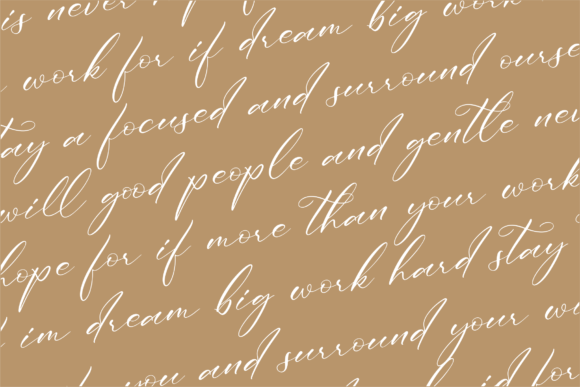 is never
work for if dream big work
stay a focused and surround ourse
will good people and gentle nev
hope for if more than your work
im dream big work hard stay
you and surround your
for